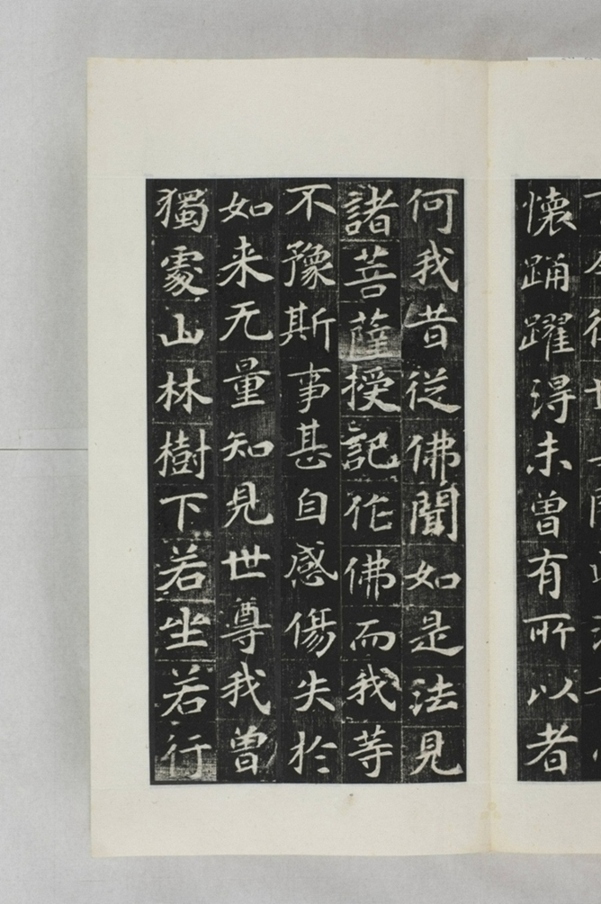 懐踊躍得未曽有所以者
何我昔從佛聞如是法見
諸菩薩授記作佛而我等
不豫斯事甚自感傷失於
如来无量知見世尊我曽
獨處山林樹下若坐若行